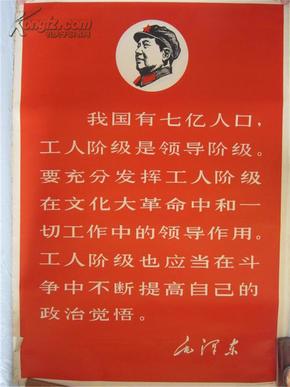 Kongfz.com
孔夫子旧书网
我国有七亿人口，
工人阶级是领导阶级。
要充分发挥工人阶级
在文化大革命中和一
切工作中的领导作用。
工人阶级也应当在斗
争中不断提高自己的
政治觉悟。
毛泽东